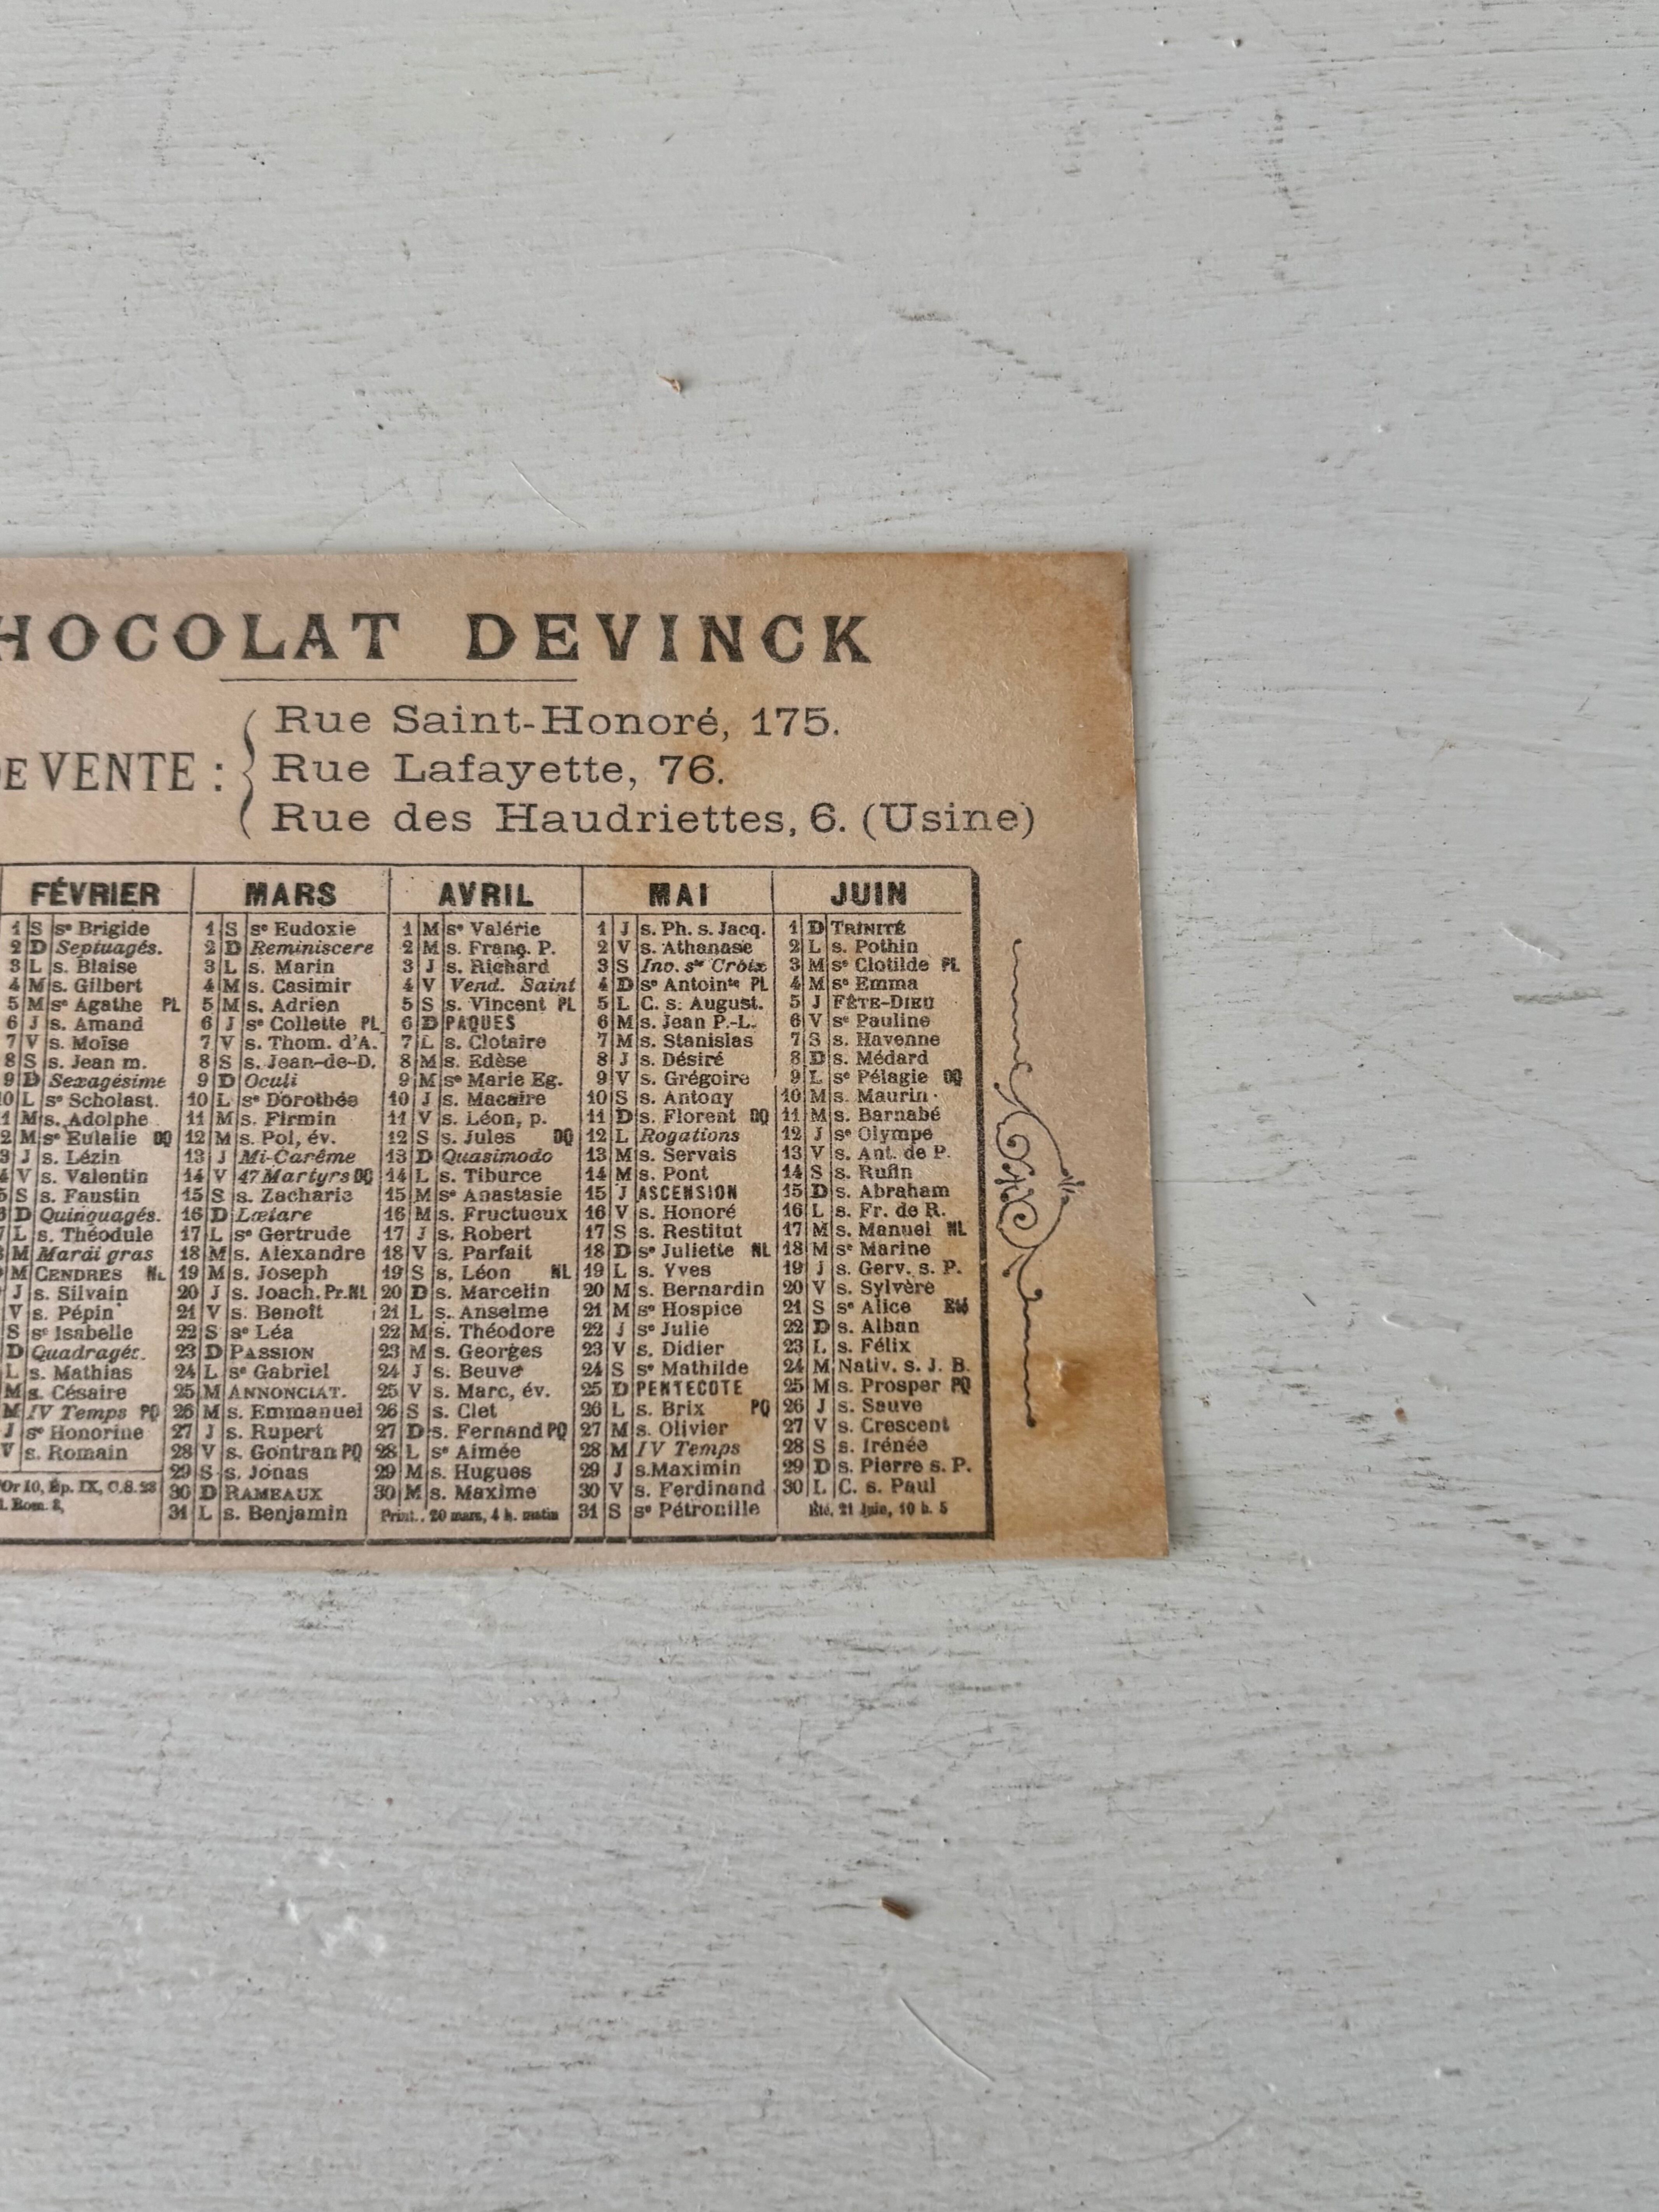 HOCOLAT DEVINCK
DE VENTE :
Rue Saint-Honoré, 175.
Rue Lafayette, 76.
Rue des Haudriettes, 6. (Usine)
FÉVRIER
1 S se Brigide
2 D Septuagés.
3 L s. Blaise
4 M s. Gilbert
5 M se Agathe PL
6 J s. Amand
7 V s. Moïse
8 S s. Jean m.
9 D Sexagésime
0 L se Scholast.
1 M s. Adolphe
2 M se Eulalie DQ
3 J s. Lézin
4 V s. Valentin
5 S s. Faustin
6 D Quinquagés.
7 L s. Théodule
8 M Mardi gras
9 M CENDRES NL
J s. Silvain
V s. Pépin
S se Isabelle
D Quadragés.
L s. Mathias
M s. Césaire
M IV Temps PQ
J se Honorine
V s. Romain
Or 10, Ép. IX, C.S. 23
l. Rom. 3,
MARS
1 S se Eudoxie
2 D Reminiscere
3 L s. Marin
4 M s. Casimir
5 M s. Adrien
6 J se Collette PL
7 V s. Thom. d'A.
8 S s. Jean-de-D.
9 D Oculi
10 L se Dorothée
11 M s. Firmin
12 M s. Pol, év.
13 J Mi-Carême
14 V 47 Martyrs DQ
15 S s. Zacharie
16 D Lætare
17 L se Gertrude
18 M s. Alexandre
19 M s. Joseph
20 J s. Joach. Pr. NL
21 V s. Benoît
22 S se Léa
23 D PASSION
24 L se Gabriel
25 M ANNONCIAT.
26 M s. Emmanuel
27 J s. Rupert
28 V s. Gontran PQ
29 S s. Jonas
30 D RAMEAUX
31 L s. Benjamin
AVRIL
1 M se Valérie
2 M s. Franç. P.
3 J s. Richard
4 V Vend. Saint
5 S s. Vincent PL
6 D PAQUES
7 L s. Clotaire
8 M s. Edèse
9 M se Marie Eg.
10 J s. Macaire
11 V s. Léon, p.
12 S s. Jules DQ
13 D Quasimodo
14 L s. Tiburce
15 M se Anastasie
16 M s. Fructueux
17 J s. Robert
18 V s. Parfait
19 S s. Léon NL
20 D s. Marcelin
21 L s. Anselme
22 M s. Théodore
23 M s. Georges
24 J s. Beuve
25 V s. Marc, év.
26 S s. Clet
27 D s. Fernand PQ
28 L se Aimée
29 M s. Hugues
30 M s. Maxime
Print., 20 mars, 4 h. matin
MAI
1 J s. Ph. s. Jacq.
2 V s. Athanase
3 S Inv. se Croix
4 D se Antointe PL
5 L C. s. August.
6 M s. Jean P.-L.
7 M s. Stanislas
8 J s. Désiré
9 V s. Grégoire
10 S s. Antony
11 D s. Florent DQ
12 L Rogations
13 M s. Servais
14 M s. Pont
15 J ASCENSION
16 V s. Honoré
17 S s. Restitut
18 D se Juliette NL
19 L s. Yves
20 M s. Bernardin
21 M se Hospice
22 J se Julie
23 V s. Didier
24 S se Mathilde
25 D PENTECOTE
26 L s. Brix PQ
27 M s. Olivier
28 M IV Temps
29 J s. Maximin
30 V s. Ferdinand
31 S se Pétronille
JUIN
1 D TRINITÉ
2 L s. Pothin
3 M se Clotilde PL
4 M se Emma
5 J FÊTE-DIEU
6 V se Pauline
7 S s. Havenne
8 D s. Médard
9 L se Pélagie DQ
10 M s. Maurin
11 M s. Barnabé
12 J se Olympe
13 V s. Ant. de P.
14 S s. Rufin
15 D s. Abraham
16 L s. Fr. de R.
17 M s. Manuel NL
18 M se Marine
19 J s. Gerv. s. P.
20 V s. Sylvère
21 S se Alice Eté
22 D s. Alban
23 L s. Félix
24 M Nativ. s. J. B.
25 M s. Prosper PQ
26 J s. Sauve
27 V s. Crescent
28 S s. Irénée
29 D s. Pierre s. P.
30 L C. s. Paul
Été, 21 Juin, 10 h. 5